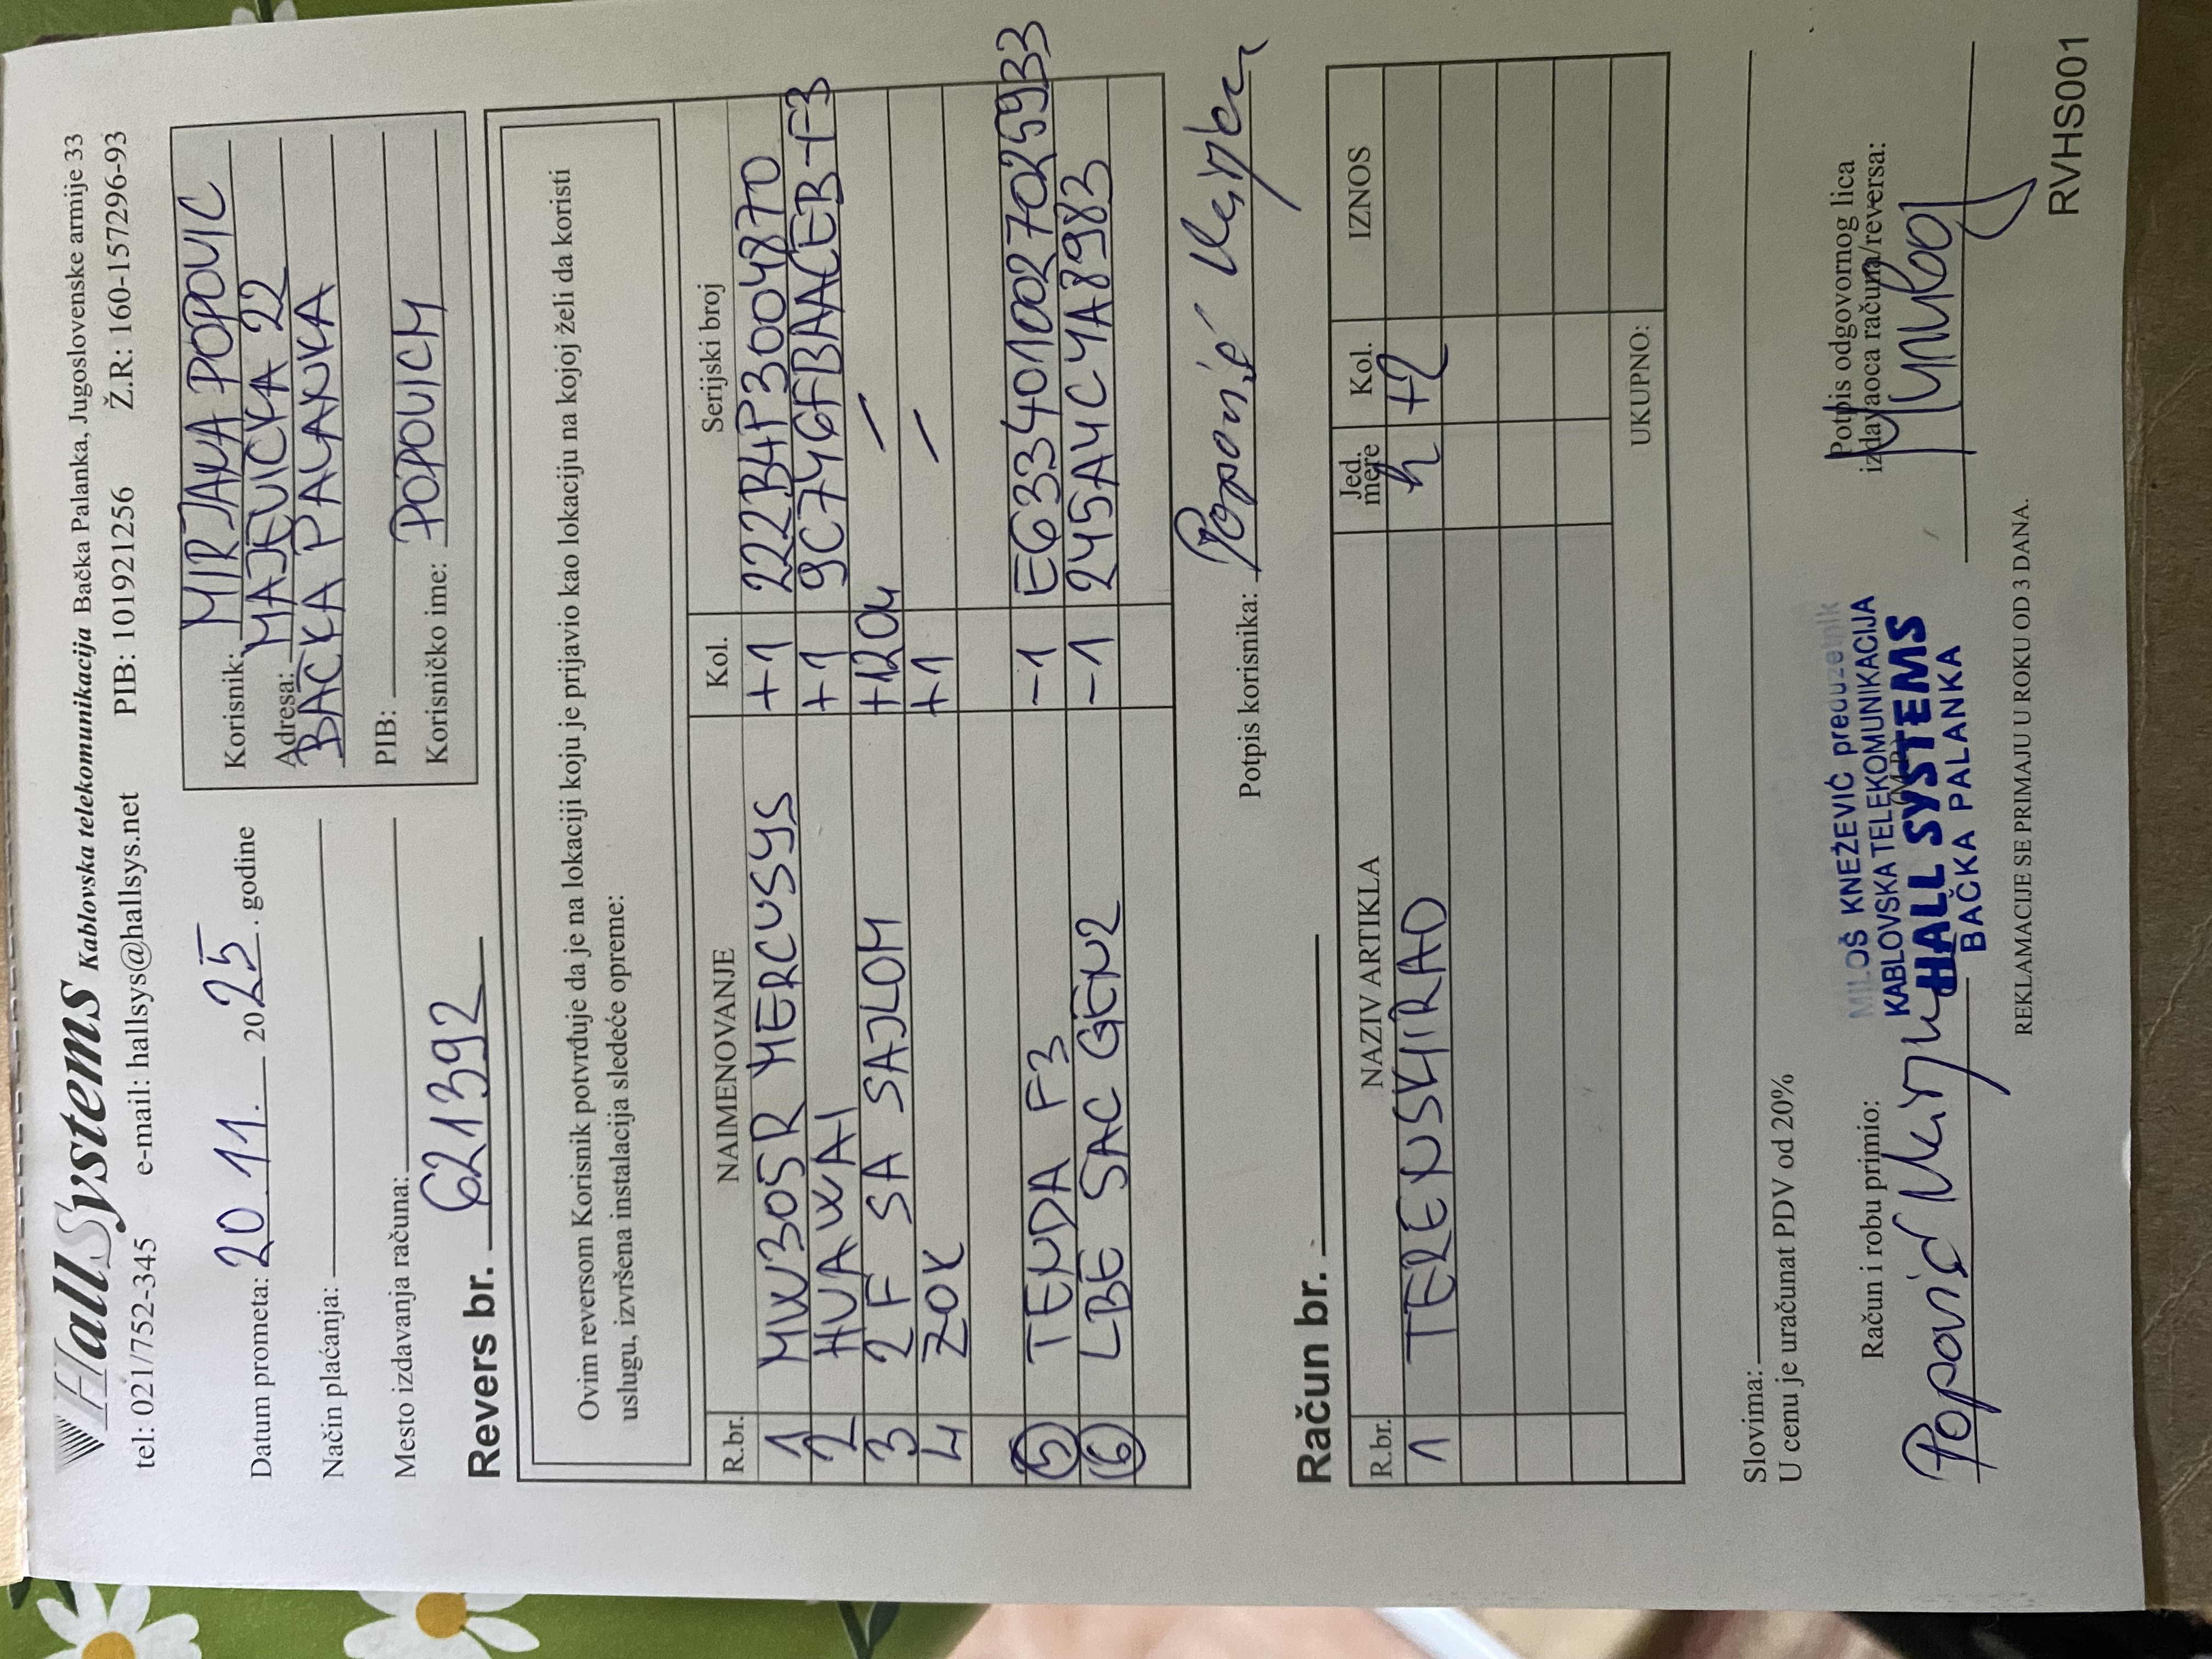 HallSystems Kablovska telekomunikacija Bačka Palanka, Jugoslovenske armije 33
tel: 021/752-345 e-mail: hallsys@hallsys.net PIB: 101921256 Ž.R: 160-157296-93
Datum prometa: 20.11. 2025. godine
Način plaćanja:
Mesto izdavanja računa:
Korisnik: MIRJANA POPOVIC
Adresa: MAJEVIČKA 22
BAČKA PALANKA
PIB:
Korisničko ime: POPOVICM
Revers br. 621392
Ovim reversom Korisnik potvrđuje da je na lokaciji koju je prijavio kao lokaciju na kojoj želi da koristi
uslugu, izvršena instalacija sledeće opreme:
R.br. NAIMENOVANJE Kol. Serijski broj
1 MW305R MERCUSYS +1 222B4P3004870
2 HUAWAI +1 9C746FBAACEB-F3
3 2F SA SAJLOM +120m /
4 ZOK +1 /
5 TENDA F3 -1 E6334010027025933
6 LBE 5AC GEN2 -1 245A4C4A8983
Potpis korisnika: Popović
Račun br.
R.br. NAZIV ARTIKLA Jed. mere Kol. IZNOS
1 TERENSKI RAD h +2
UKUPNO:
Slovima:
U cenu je uračunat PDV od 20%
Račun i robu primio:
Popović
MILOŠ KNEŽEVIĆ preduzetnik
KABLOVSKA TELEKOMUNIKACIJA
HALL SYSTEMS
BAČKA PALANKA
Potpis odgovornog lica
izdavaoca računa/reversa:
REKLAMACIJE SE PRIMAJU U ROKU OD 3 DANA.
RVHS001